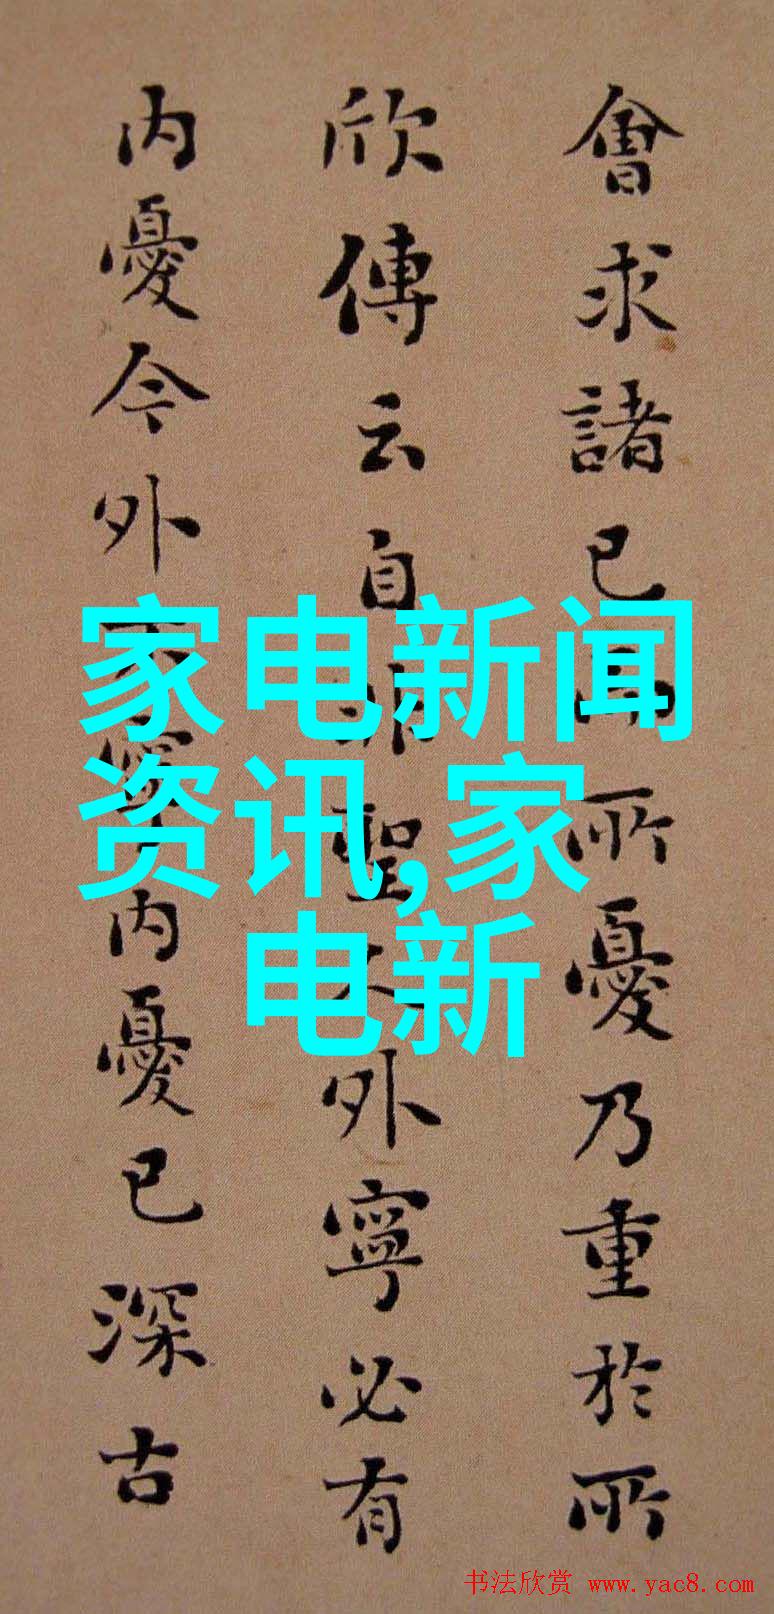 會求諸已而所憂乃重於所
欣傳云自非聖人外寧必有
内憂今外不寧内憂已深古
家电新闻
资讯,家
电新
书法欣赏 www.yac8.com